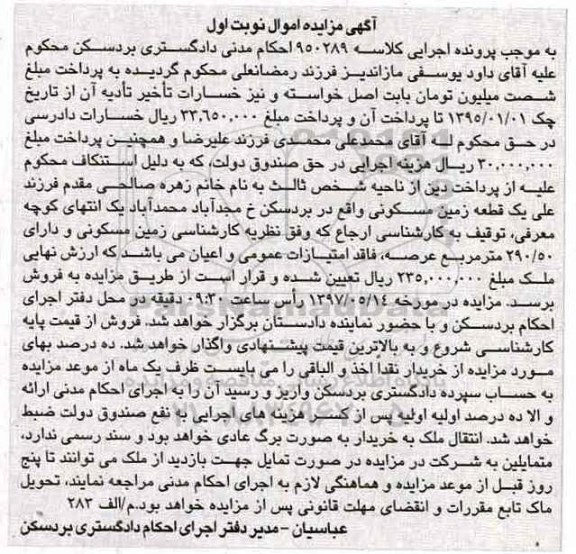 آگهی مزایده اموال نوبت اول
به موجب پرونده اجرایی کلاسه ۹۵۰۲۸۹ احکام مدنی دادگستری بردسکن محکوم
علیه آقای داود یوسفی مازاندیز فرزند رمضانعلی محکوم گردیده به پرداخت مبلغ
شصت میلیون تومان بابت اصل خواسته و نیز خسارات تأخیر تأدیه آن از تاریخ
چک ۱۳۹۵/۰۱/۰۱ تا پرداخت آن و پرداخت مبلغ ۳۳,۶۵۰,۰۰۰ ریال خسارات دادرسی
در حق محکوم له آقای محمدعلی محمدی فرزند علیرضا و همچنین پرداخت مبلغ
۳۰,۰۰۰,۰۰۰ ریال هزینه اجرایی در حق صندوق دولت، که به دلیل استنکاف محکوم
علیه از پرداخت دین از ناحیه شخص ثالث به نام خانم زهره صالحی مقدم فرزند
علی یک قطعه زمین مسکونی واقع در بردسکن خ مجدآباد محمدآباد یک انتهای کوچه
معرفی، توقیف به کارشناسی ارجاع که وفق نظریه کارشناسی زمین مسکونی و دارای
۲۹۰/۵۰ مترمربع عرصه، فاقد امتیازات عمومی و اعیان می باشد که ارزش نهایی
ملک مبلغ ۲۳۵,۰۰۰,۰۰۰ ریال تعیین شده و قرار است از طریق مزایده به فروش
برسد. مزایده در مورخه ۱۳۹۷/۰۵/۱۴ رأس ساعت ۰۹:۳۰ دقیقه در محل دفتر اجرای
احکام بردسکن و با حضور نماینده دادستان برگزار خواهد شد. فروش از قیمت پایه
کارشناسی شروع و به بالاترین قیمت پیشنهادی واگذار خواهد شد. ده درصد بهای
مورد مزایده از خریدار نقداً اخذ و الباقی را می بایست ظرف یک ماه از موعد مزایده
به حساب سپرده دادگستری بردسکن واریز و رسید آن را به اجرای احکام مدنی ارائه
و الا ده درصد اولیه اولیه پس از کسر هزینه های اجرایی به نفع صندوق دولت ضبط
خواهد شد. انتقال ملک به خریدار به صورت برگ عادی خواهد بود و سند رسمی ندارد،
متمایلین به شرکت در مزایده در صورت تمایل جهت بازدید از ملک می توانند تا پنج
روز قبل از موعد مزایده و هماهنگی لازم به اجرای احکام مدنی مراجعه نمایند، تحویل
ماک تابع مقررات و انقضای مهلت قانونی پس از مزایده خواهد بود.م/الف ۲۸۳
عباسیان - مدیر دفتر اجرای احکام دادگستری بردسکن
ParsNamadData